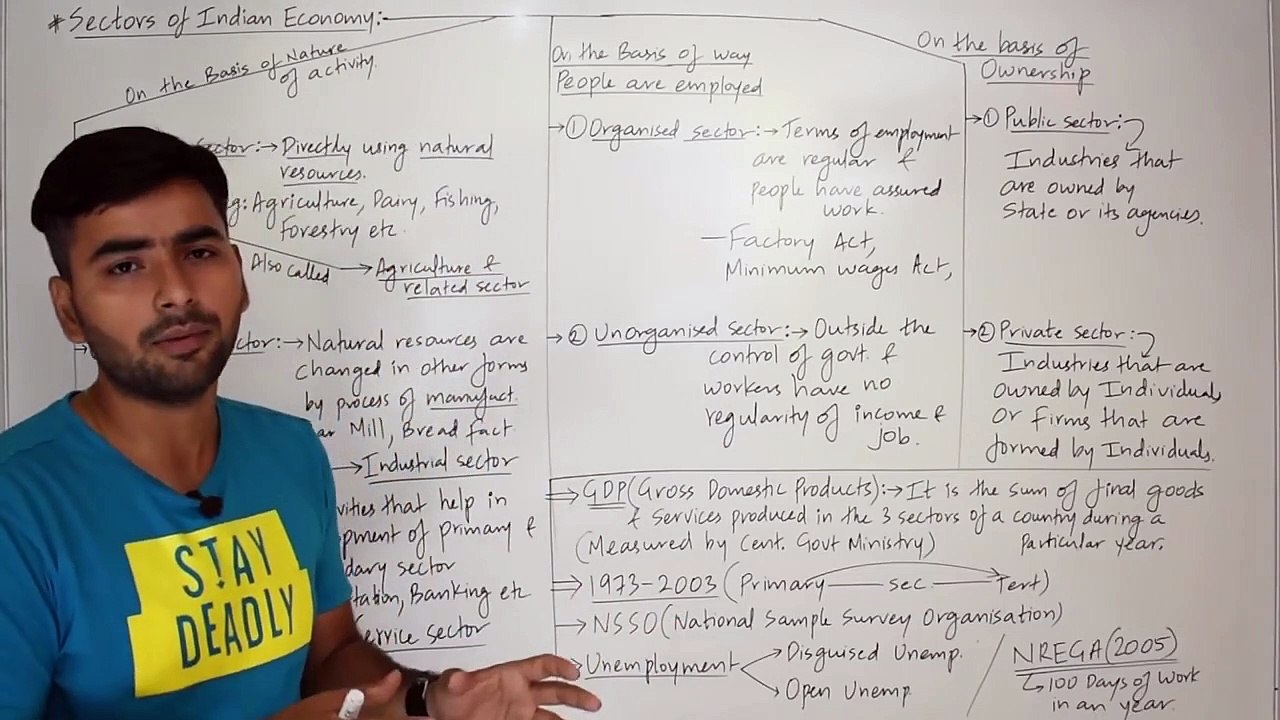 *Sectors of Indian Economy:-
On the Basis of Nature
of activity.
Sector:→ Directly using natural
resources.
g: Agriculture, Dairy, Fishing,
Forestry etc.
Also called → Agriculture &
related sector
ctor:→ Natural resources are
changed in other forms
by process of manufact.
Mill, Bread fact.
→ Industrial sector
vities that help in
pment of primary &
dary sector
tation, Banking etc
Service sector
On the Basis of way
People are employed
→ ① Organised sector:→ Terms of employment
are regular &
people have assured
work.
— Factory Act,
Minimum wages Act,
→ ② Unorganised sector:→ Outside the
control of govt. &
workers have no
regularity of income &
job.
On the basis of
Ownership
→ ① Public sector:
Industries that
are owned by
State or its agencies.
→ ② Private sector:
Industries that are
owned by Individuals
Or firms that are
formed by Individuals.
⇒ GDP (Gross Domestic Products):→ It is the sum of final goods
& Services produced in the 3 sectors of a country during a
particular year.
(Measured by Cent. Govt Ministry)
⇒ 1973-2003 (Primary — sec — Tert)
→ NSSO (National Sample Survey Organisation)
→ Unemployment → Disguised Unemp.
→ Open Unemp.
NREGA (2005)
↳ 100 Days of Work
in an year.
STAY
DEADLY